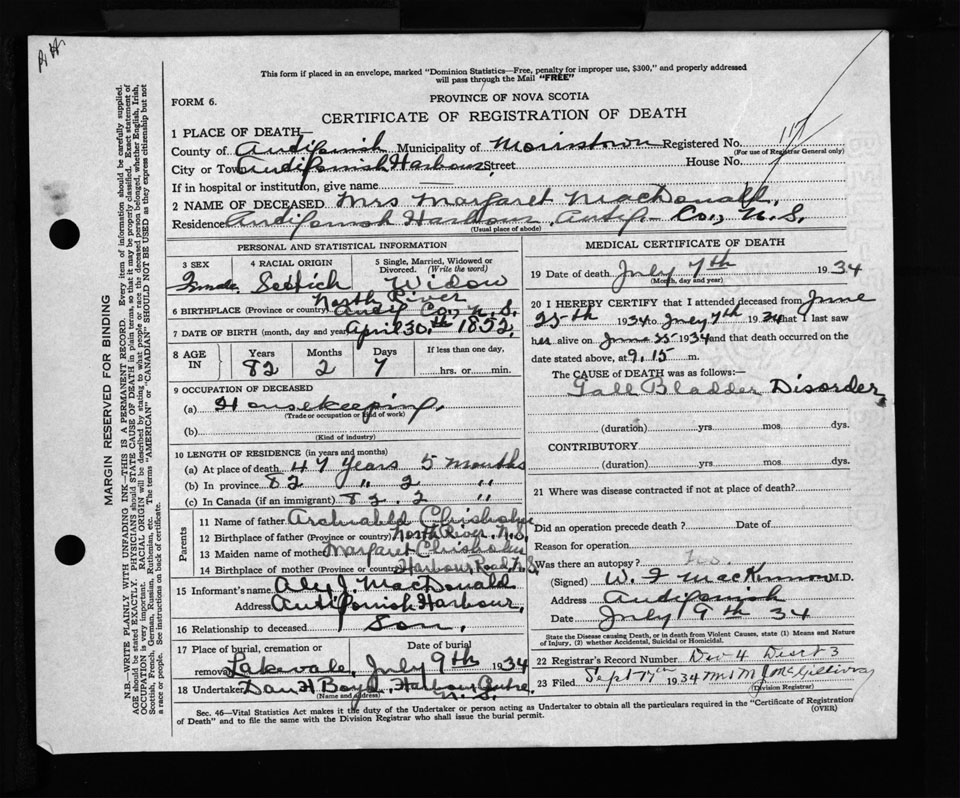 This form if placed in an envelope, marked "Dominion Statistics—Free, penalty for improper use, $300," and properly addressed
will pass through the Mail "FREE"
FORM 6.
PROVINCE OF NOVA SCOTIA
CERTIFICATE OF REGISTRATION OF DEATH
1 PLACE OF DEATH—
County of Antigonish Municipality of Morristown Registered No. 117
(For use of Registrar General only)
City or Town Antigonish Harbour Street House No.
If in hospital or institution, give name
2 NAME OF DECEASED Mrs Margaret MacDonald,
Residence Antigonish Harbour, Antig. Co., N.S.
(Usual place of abode)
PERSONAL AND STATISTICAL INFORMATION
3 SEX Female
4 RACIAL ORIGIN Scottich
5 Single, Married, Widowed or Divorced. (Write the word) Widow
North River
6 BIRTHPLACE (Province or country) Antig Co., N.S.
7 DATE OF BIRTH (month, day and year) April 30th 1852
8 AGE IN
Years Months Days If less than one day,
82 2 7 hrs. or min.
9 OCCUPATION OF DECEASED
(a) Housekeeping
(Trade or occupation or kind of work)
(b)
(Kind of industry)
10 LENGTH OF RESIDENCE (in years and months)
(a) At place of death 47 Years 5 Months
(b) In province 82 " 2 "
(c) In Canada (if an immigrant) 82 . 2 "
Parents
11 Name of father Archiabld Chisholm
12 Birthplace of father (Province or country) North River, N.S.
13 Maiden name of mother Margaret Chisholm
14 Birthplace of mother (Province or country) Harbour Road, N.S.
15 Informant's name Alex J. MacDonald
Address Antigonish Harbour,
16 Relationship to deceased Son,
17 Place of burial, cremation or removal Date of burial
Lakevale, July 9th 1934
18 Undertaker Dan H Boyd, Harbour Centre
(Name and address) N.S.
MEDICAL CERTIFICATE OF DEATH
19 Date of death July 7th 1934
(Month, day and year)
20 I HEREBY CERTIFY that I attended deceased from June
25th 1934 to July 7th 1934 that I last saw
her alive on June 25 1934 and that death occurred on the
date stated above, at 9.15 m.
The CAUSE OF DEATH was as follows:—
Gall Bladder Disorder
(duration) yrs mos dys.
CONTRIBUTORY
(duration) yrs mos dys.
21 Where was disease contracted if not at place of death?
Did an operation precede death? Date of
Reason for operation
Was there an autopsy?
(Signed) W. F MacKinnon M.D.
Address Antigonish
Date July 9th 34
State the Disease causing Death, or in death from Violent Causes, state (1) Means and Nature
of Injury, (2) whether Accidental, Suicidal or Homicidal.
22 Registrar's Record Number Div 4 Dist 3
23 Filed Sept 7th 1934 Mrs M J McGillivray
(Division Registrar)
Sec. 46—Vital Statistics Act makes it the duty of the Undertaker or person acting as Undertaker to obtain all the particulars required in the "Certificate of Registration
of Death" and to file the same with the Division Registrar who shall issue the burial permit.
(OVER)
MARGIN RESERVED FOR BINDING
N.B.—WRITE PLAINLY WITH UNFADING INK—THIS IS A PERMANENT RECORD. Every item of information should be carefully supplied.
AGE should be stated EXACTLY. PHYSICIANS should STATE CAUSE OF DEATH in plain terms, so that it may be properly classified. Exact statement of
OCCUPATION is very important. RACIAL ORIGIN will be described by stating to what people or race the deceased person belonged, whether English, Irish,
Scottish, French, German, Russian, Ruthenian, etc. The terms "AMERICAN" or "CANADIAN" SHOULD NOT BE USED as they express citizenship but not
a race or people. See instructions on back of certificate.